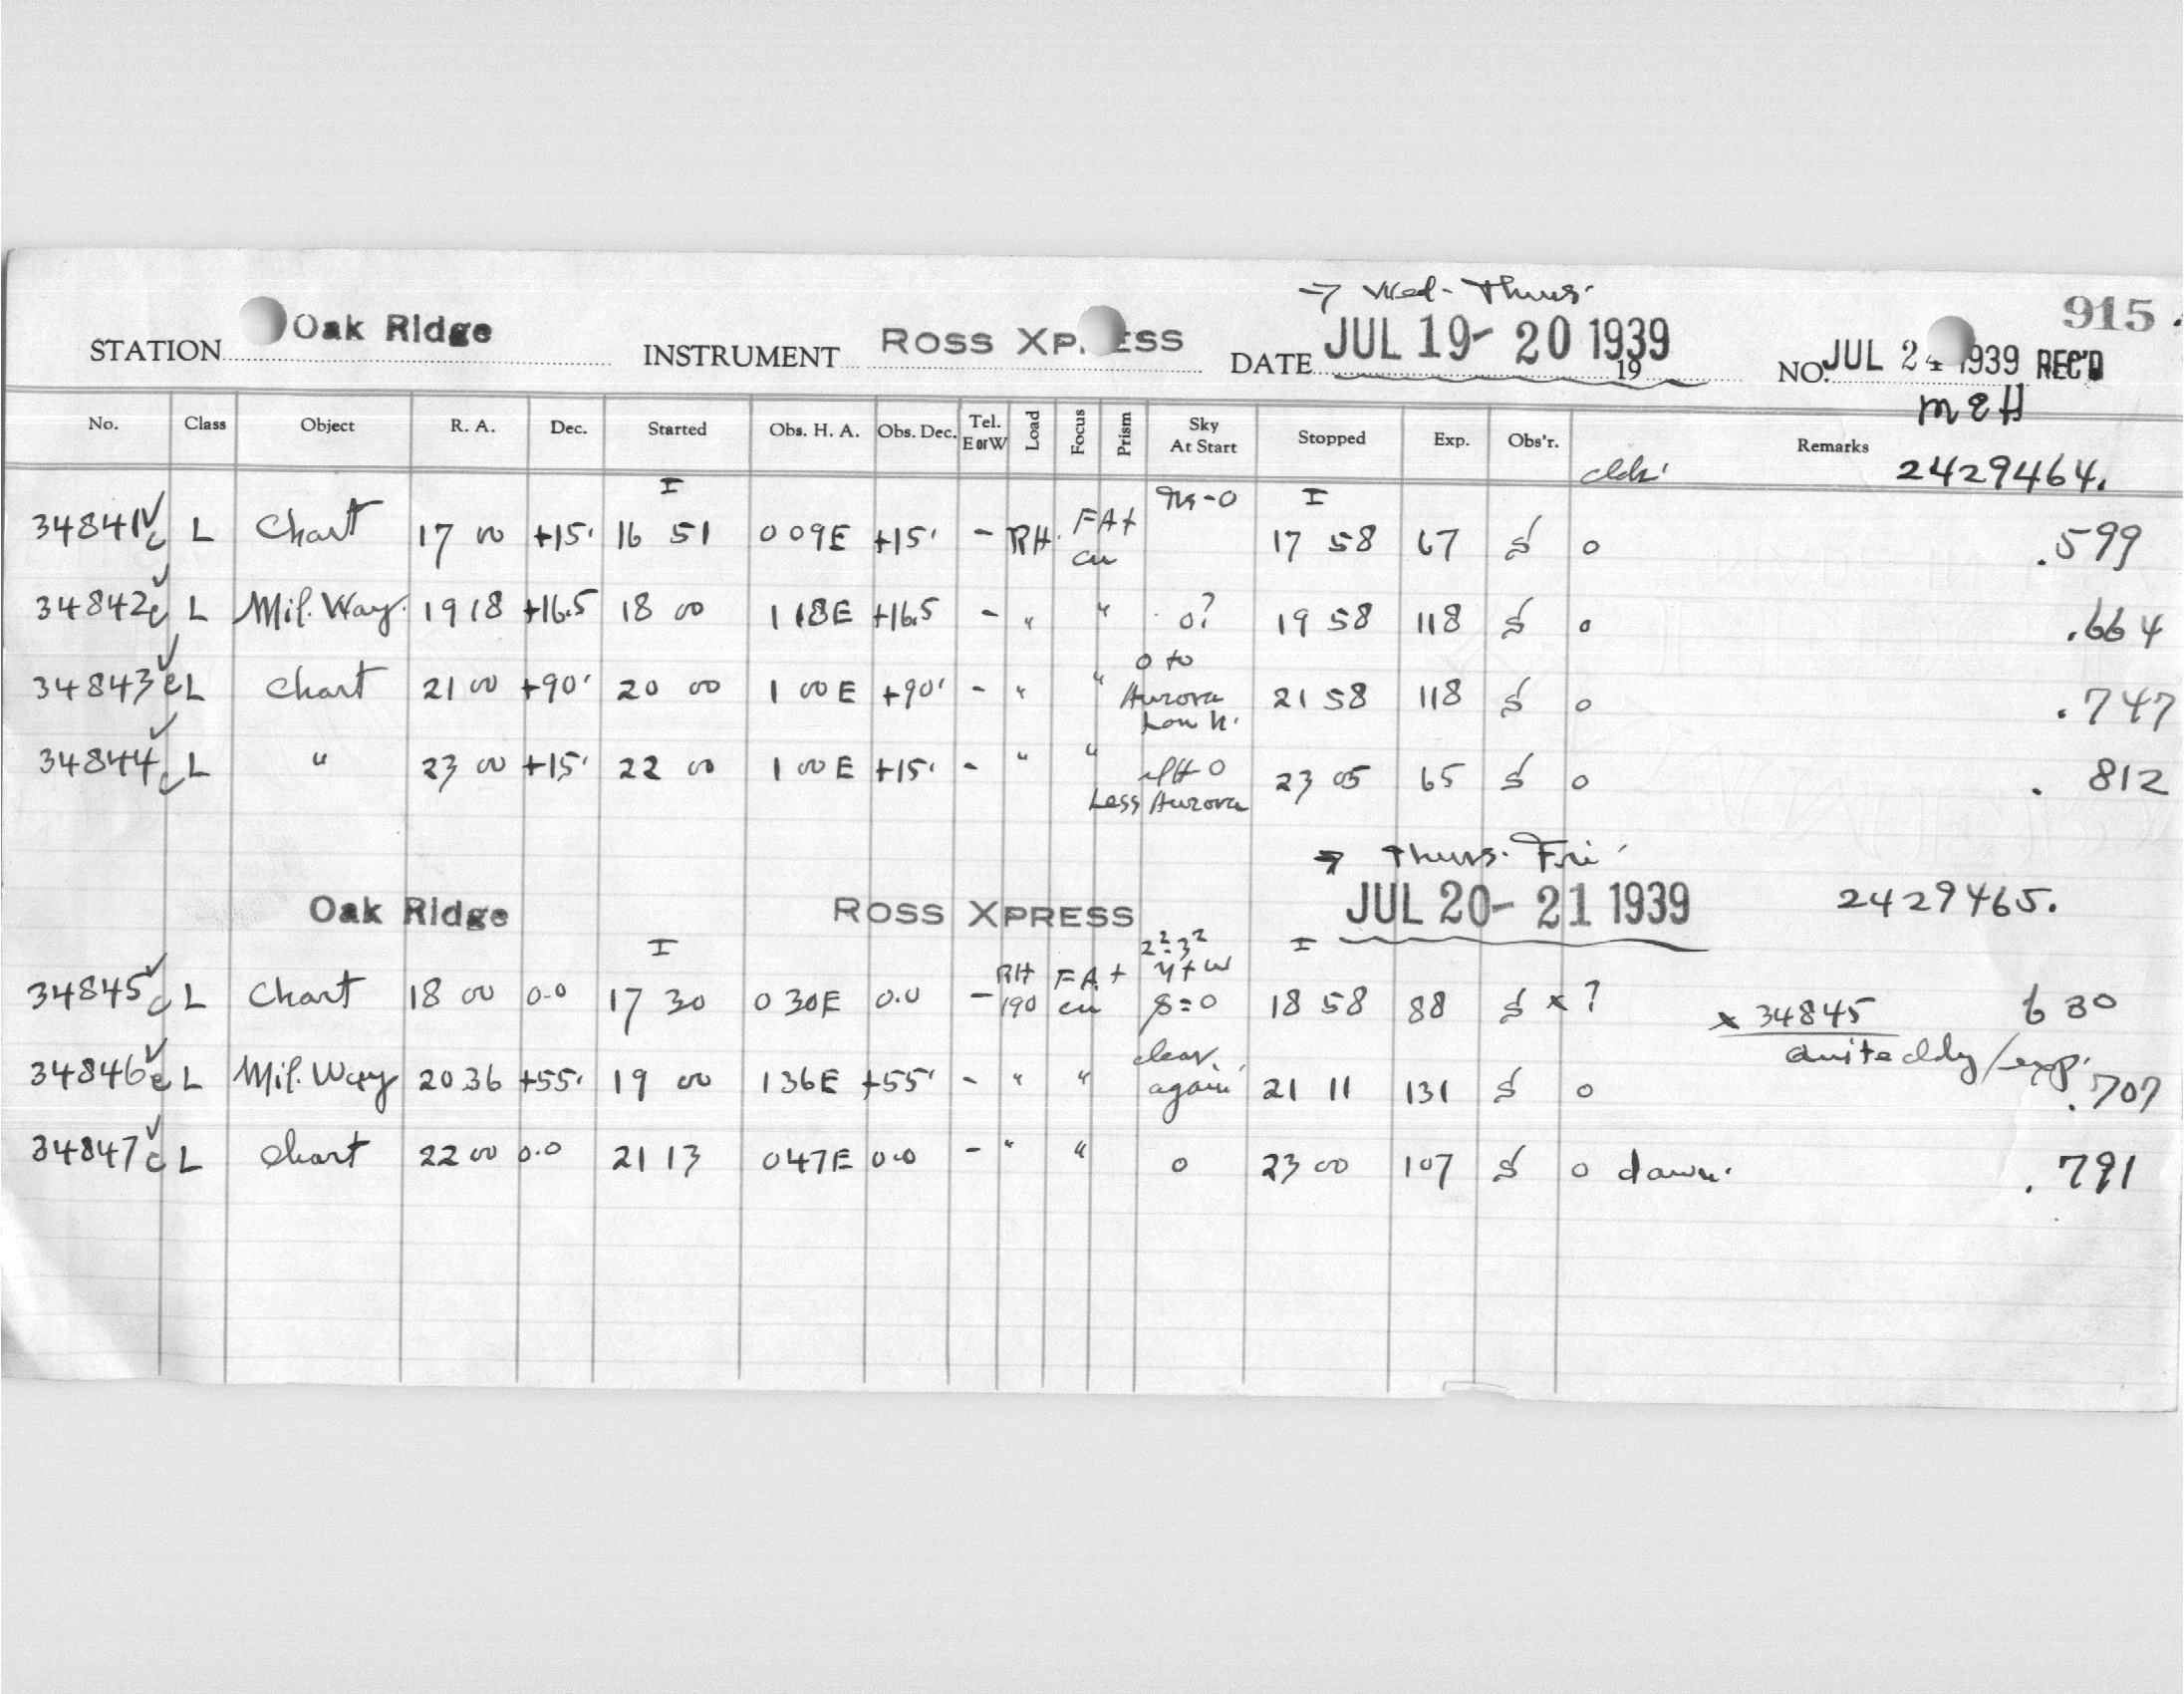 → Wed-Thurs.
915.
STATION Oak Ridge INSTRUMENT ROSS XP ESS DATE JUL 19-20 1939 19 NO. JUL 24 1939 REC'D
M&H
No. Class Object R. A. Dec. Started Obs. H. A. Obs. Dec. Tel. E or W Load Focus Prism Sky At Start Stopped Exp. Obs'r. Remarks
2429464.
I I
34841 c L Chart 17 00 +15. 16 51 0 09E +15. - RH. FA+ cu 17 58 67 S o .599
34842 c L Mil. Way. 19 18 +16.5 18 00 1 18E +16.5 - " " o? 19 58 118 S o .664
34843 c L Chart 21 00 +90. 20 00 1 00E +90. - " " o to Aurora Low N. 21 58 118 S o .747
34844 c L " 23 00 +15. 22 00 1 00E +15. - " " o Less Aurora 23 05 65 S o .812
→ Thurs. Fri.
Oak Ridge ROSS XPRESS JUL 20-21 1939 2429465.
I I
34845 c L Chart 18 00 0.0 17 30 0 30E 0.0 - RH 190 FA+ cu S=0 18 58 88 S x ? x 34845 630
Quite cldy/exp.
34846 c L Mil. Way 20 36 +55. 19 00 1 36E +55. - " " clear again 21 11 131 S o .707
34847 c L Chart 22 00 0.0 21 13 0 47E 0.0 - " " o 23 00 107 S o dawn. .791